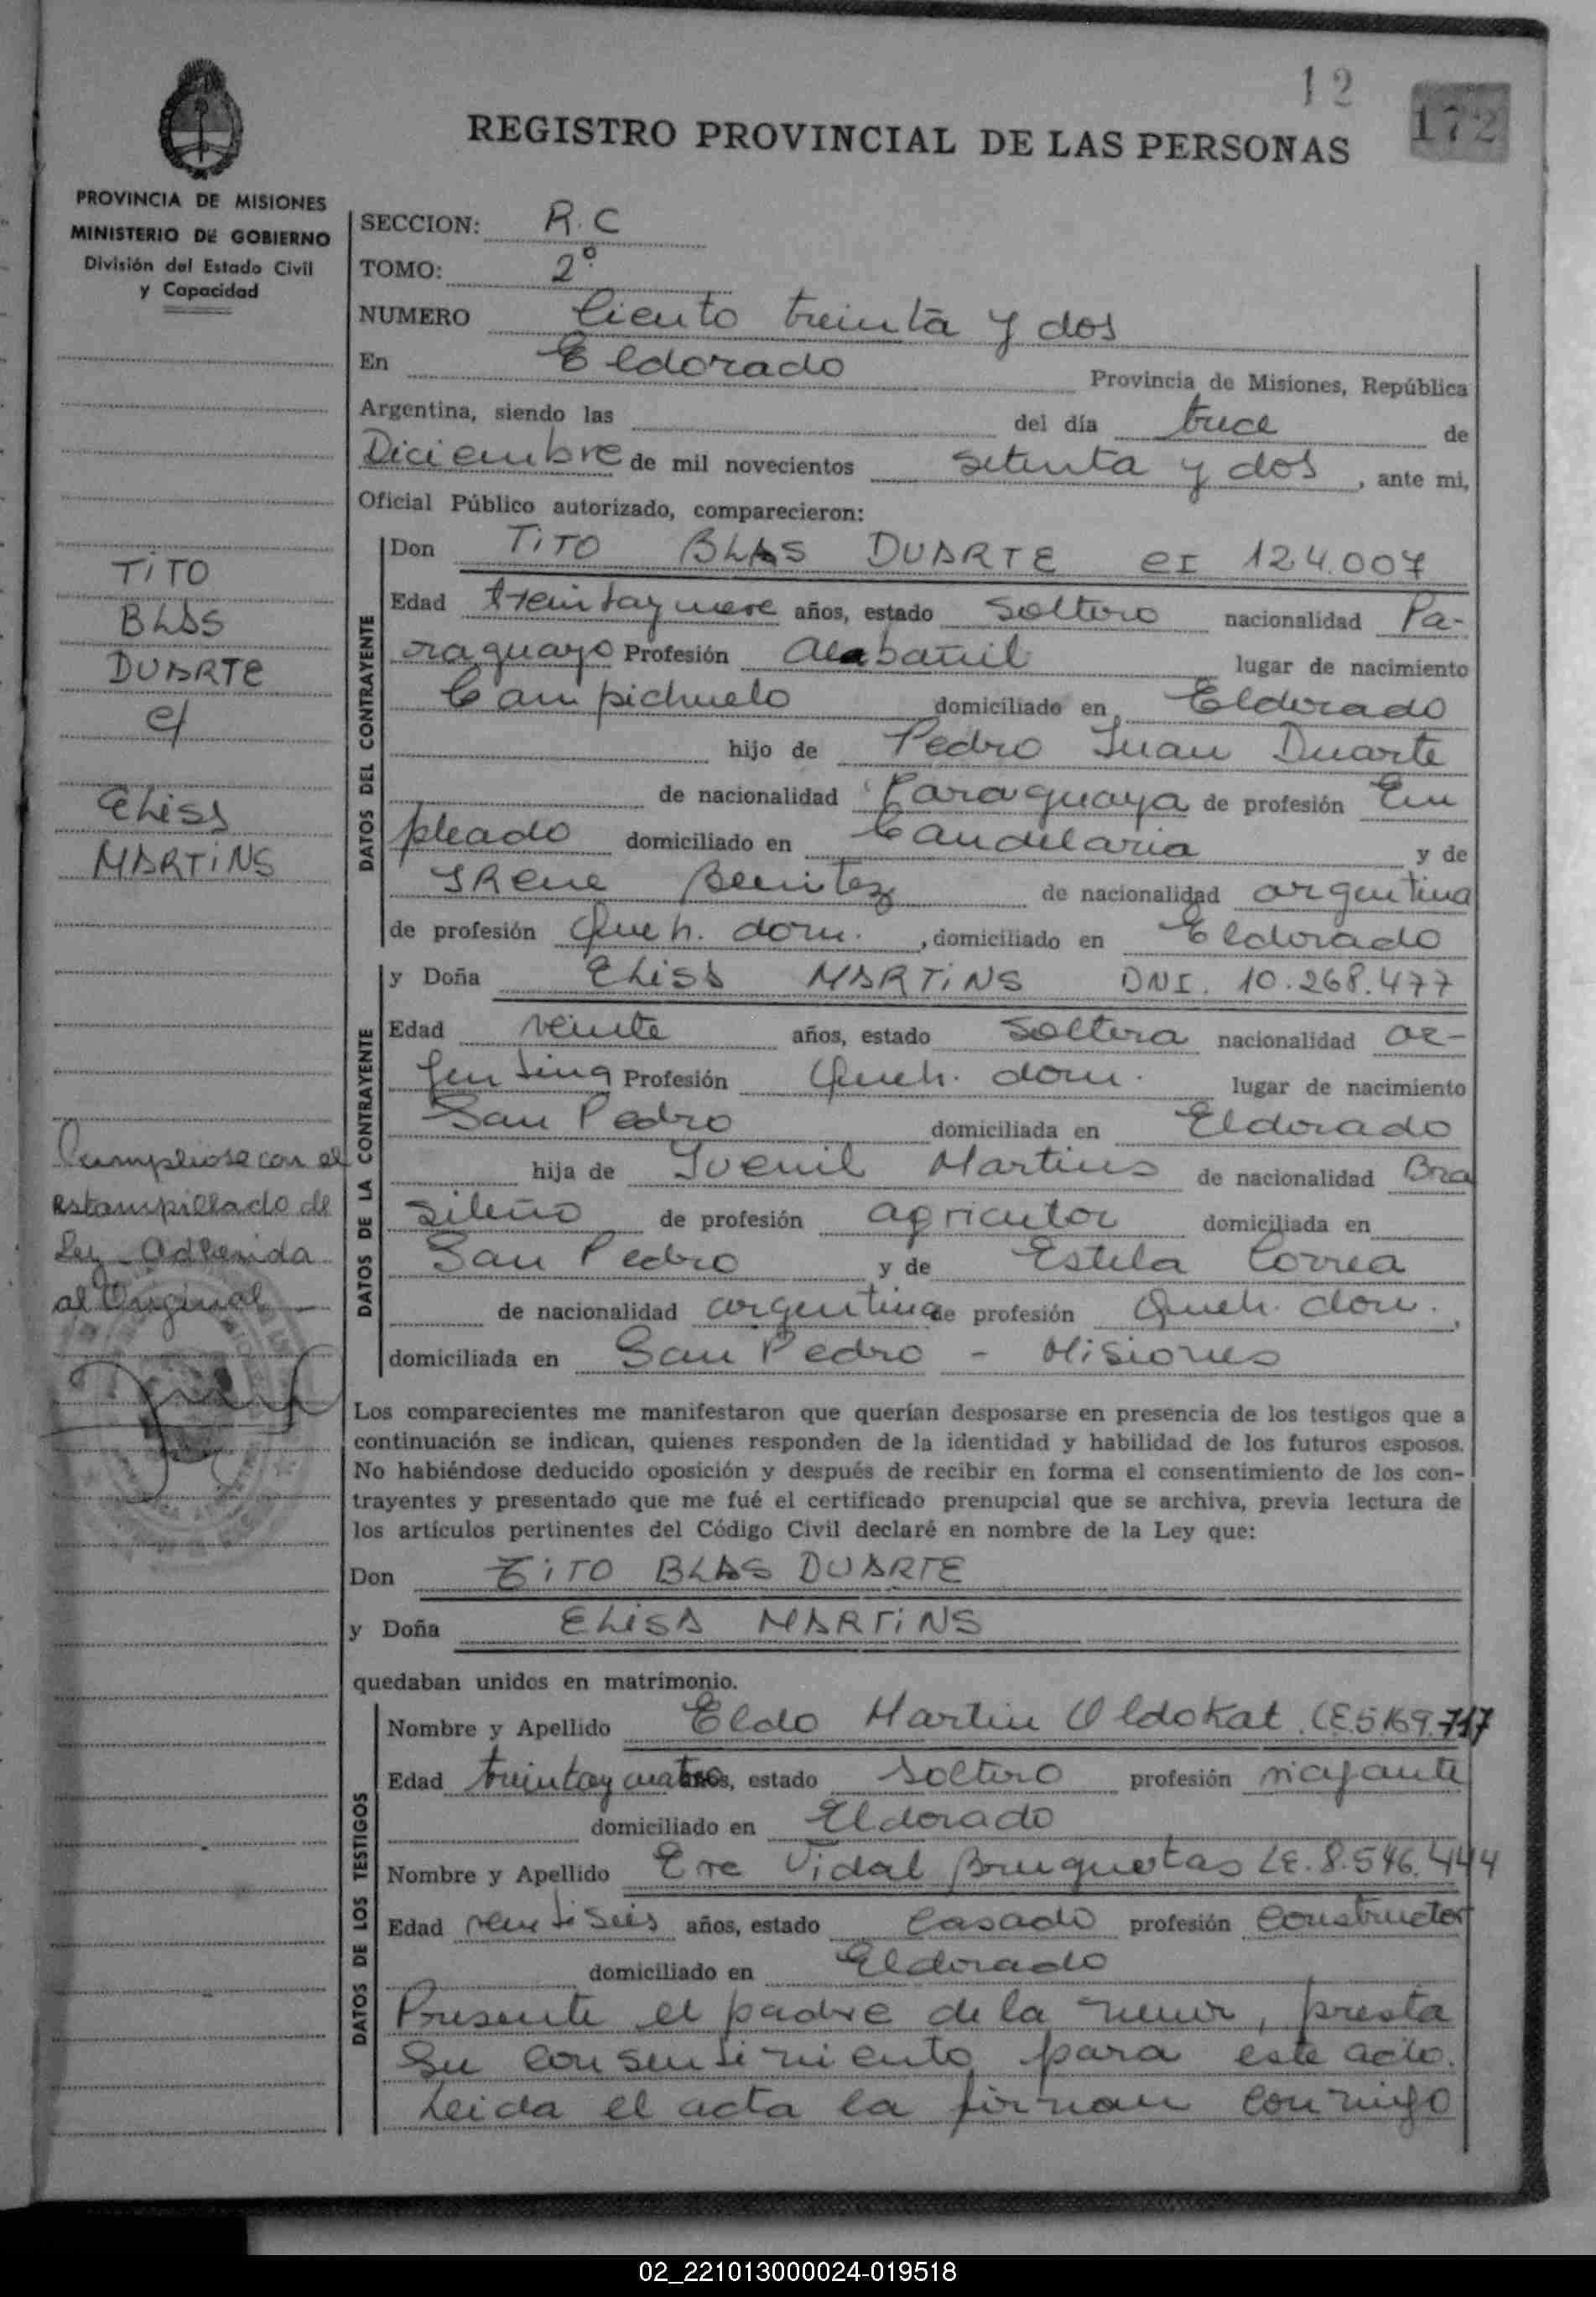 12
172
REGISTRO PROVINCIAL DE LAS PERSONAS
PROVINCIA DE MISIONES
MINISTERIO DE GOBIERNO
División del Estado Civil
y Capacidad
SECCION: R.C
TOMO: 2º
NUMERO Ciento treinta y dos
En Eldorado Provincia de Misiones, República
Argentina, siendo las del día trece de
Diciembre de mil novecientos setenta y dos, ante mi,
Oficial Público autorizado, comparecieron:
TITO
BLAS
DUARTE
c/
ELISA
MARTINS
Cumpliose con el
estampillado de
Ley Adherida
al Original
DATOS DEL CONTRAYENTE
Don TITO BLAS DUARTE CI 124.007
Edad treintaynueve años, estado Soltero nacionalidad Pa-
raguayo Profesión Albañil lugar de nacimiento
Campichuelo domiciliado en Eldorado
hijo de Pedro Juan Duarte
de nacionalidad Paraguaya de profesión Em
pleado domiciliado en Candelaria y de
IRene Benitez de nacionalidad argentina
de profesión Queh. dom. , domiciliado en Eldorado
DATOS DE LA CONTRAYENTE
y Doña ELISA MARTINS DNI. 10.268.477
Edad veinte años, estado Soltera nacionalidad ar-
gentina Profesión Queh. dom. lugar de nacimiento
San Pedro domiciliada en Eldorado
hija de Juenil Martins de nacionalidad Bra
sileño de profesión agricultor domiciliada en
San Pedro y de Estela Correa
de nacionalidad argentina de profesión Queh. dom.,
domiciliada en San Pedro - Misiones
Los comparecientes me manifestaron que querían desposarse en presencia de los testigos que a
continuación se indican, quienes responden de la identidad y habilidad de los futuros esposos.
No habiéndose deducido oposición y después de recibir en forma el consentimiento de los con-
trayentes y presentado que me fué el certificado prenupcial que se archiva, previa lectura de
los artículos pertinentes del Código Civil declaré en nombre de la Ley que:
Don TITO BLAS DUARTE
y Doña ELISA MARTINS
quedaban unidos en matrimonio.
DATOS DE LOS TESTIGOS
Nombre y Apellido Eldo Martin Oldokat CE.5.169.717
Edad treintay cuatro años, estado soltero profesión viajante
domiciliado en Eldorado
Nombre y Apellido Vidal LE.8.546.444
Edad veintiseis años, estado casado profesión constructor
domiciliado en Eldorado
Presente el padre de la menor, presta
su consentimiento para este acto.
Leida el acta la firman conmigo
02_221013000024-019518